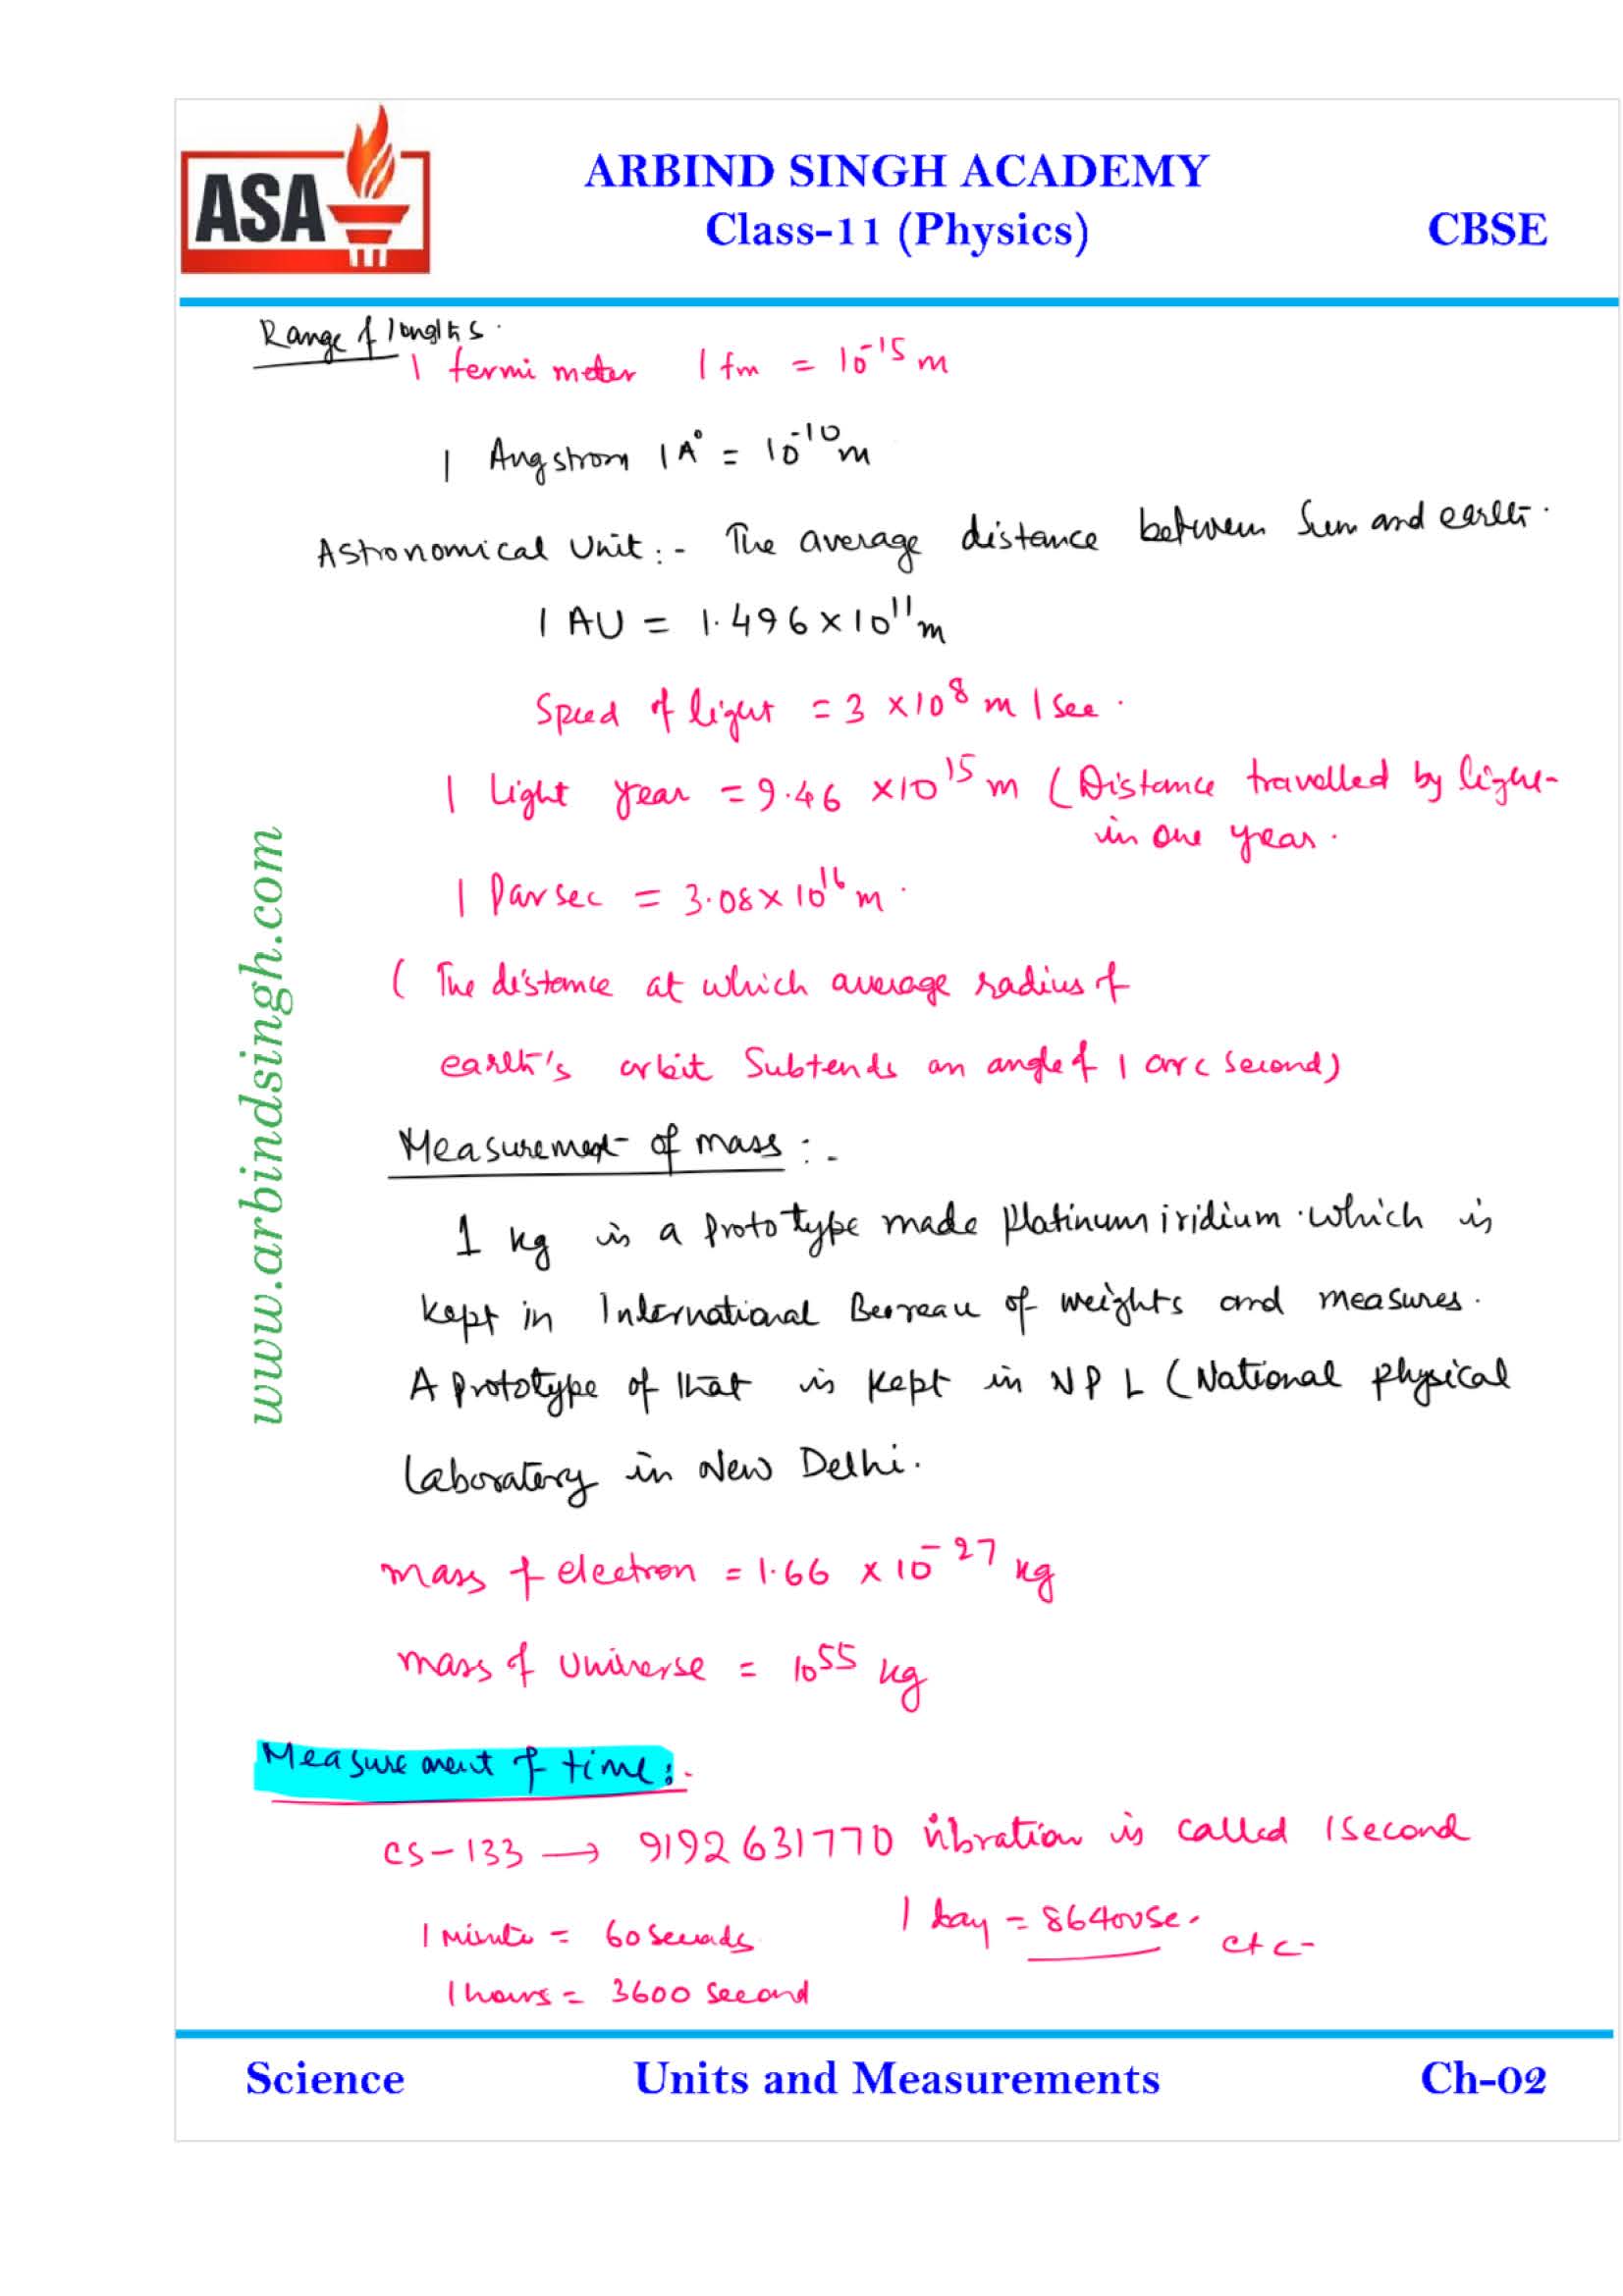 ASA
ARBIND SINGH ACADEMY
Class-11 (Physics)
CBSE
Range of lengths.
1 fermi meter 1 fm = 10⁻¹⁵ m
1 Angstrom 1 A° = 10⁻¹⁰ m
Astronomical Unit :- The average distance between Sun and earth.
1 AU = 1.496 × 10¹¹ m
Speed of light = 3 × 10⁸ m / Sec.
1 Light year = 9.46 × 10¹⁵ m (Distance travelled by light
in one year.
1 Parsec = 3.08 × 10¹⁶ m.
( The distance at which average radius of
earth's orbit Subtends an angle of 1 arc second)
Measurement of mass :-
1 kg is a prototype made platinum iridium. which is
kept in International Beoreau of weights and measures.
A prototype of that is kept in NPL (National physical
laboratory in New Delhi.
mass of electron = 1.66 × 10⁻²⁷ kg
mass of universe = 10⁵⁵ kg
Measurement of time:-
CS-133 → 9192631770 vibration is called 1 second
1 minute = 60 seconds
1 day = 86400 se.
etc-
1 hours = 3600 second
www.arbindsingh.com
Science
Units and Measurements
Ch-02